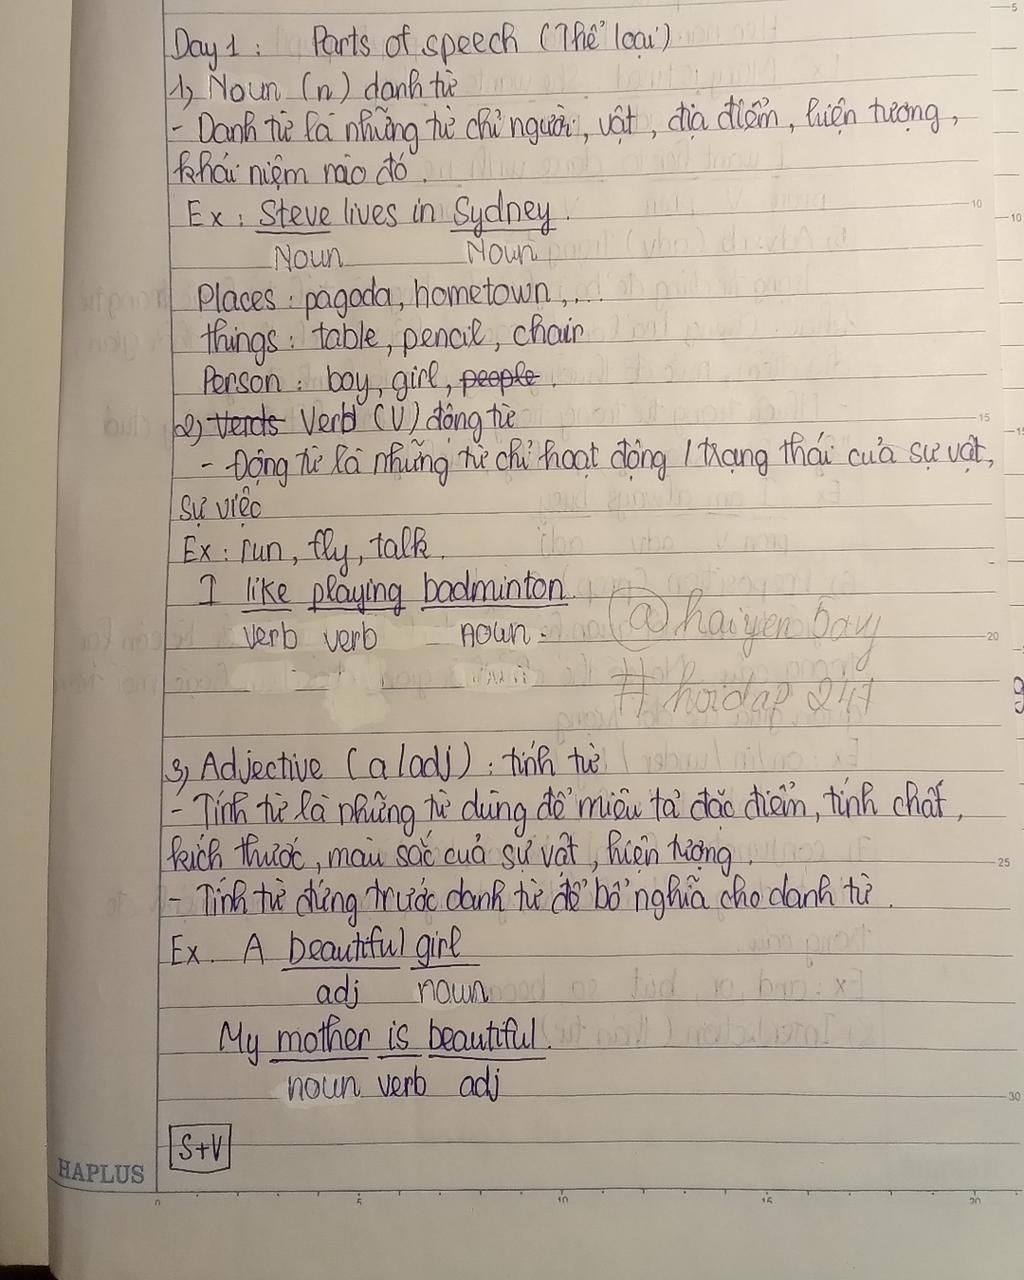 Day 1 : Parts of speech (Thể loại)
1, Noun (n) danh từ
- Danh từ là những từ chỉ người, vật, địa điểm, hiện tượng,
khái niệm nào đó.
Ex : Steve lives in Sydney.
Noun Noun
Places : pagoda, hometown, ...
things : table, pencil, chair
Person : boy, girl, people.
2, Verds Verb (V) động từ
- Động từ là những từ chỉ hoạt động / trạng thái của sự vật,
sự việc
Ex : run, fly, talk.
I like playing badminton.
verb verb noun.
@haiyen bay
#hoidap 247
3, Adjective (a/adj) : tính từ
- Tính từ là những từ dùng để miêu tả đặc điểm, tính chất,
kích thước, màu sắc của sự vật, hiện tượng.
- Tính từ đứng trước danh từ để bổ nghĩa cho danh từ.
Ex. A beautiful girl
adj noun
My mother is beautiful.
noun verb adj
S+V
HAPLUS